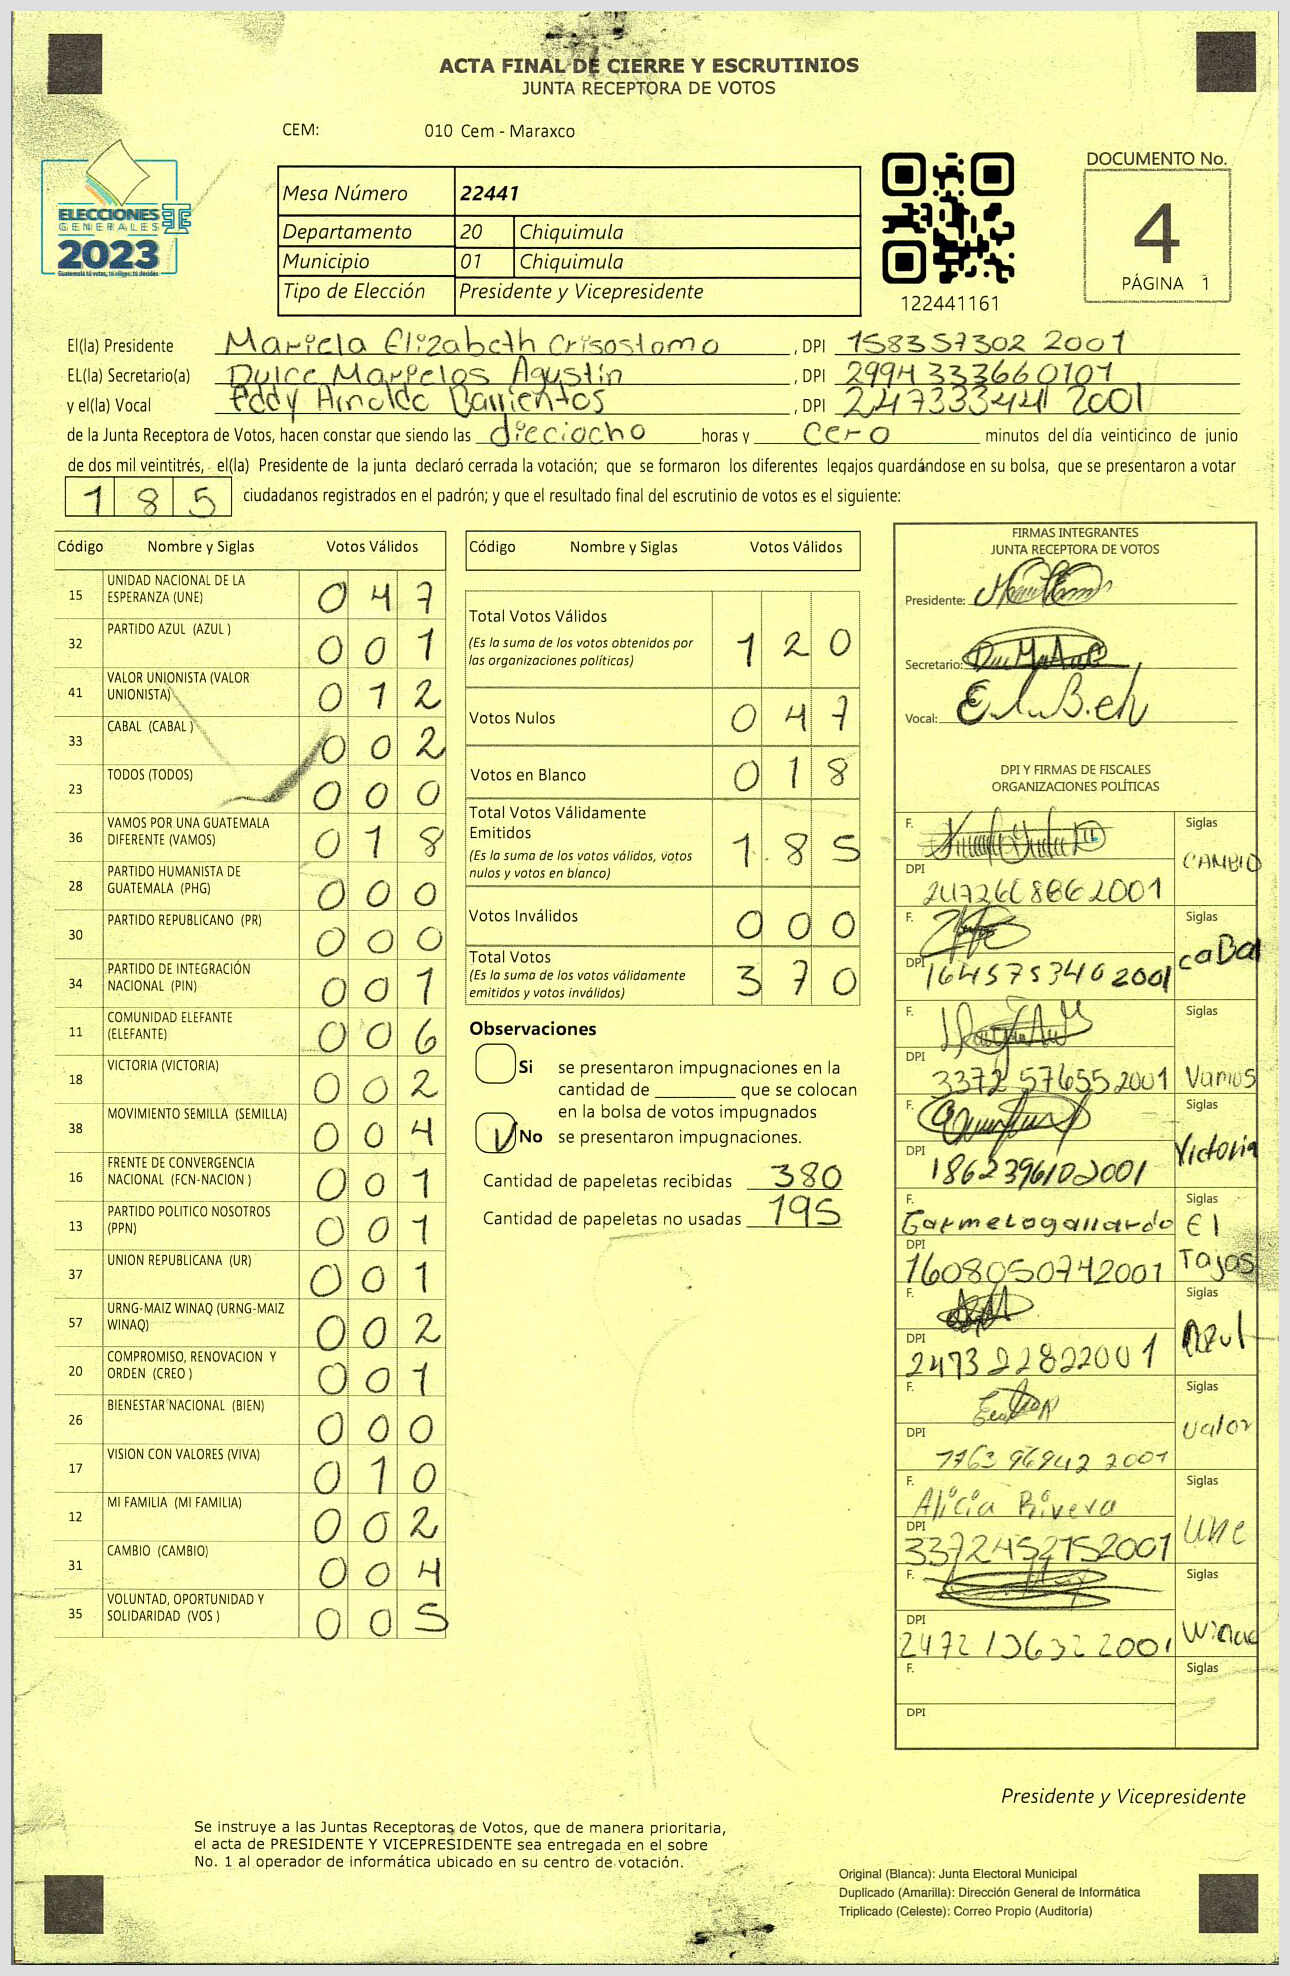 ACTA FINAL DE CIERRE Y ESCRUTINIOS
JUNTA RECEPTORA DE VOTOS
CEM: 010 Cem - Maraxco
ELECCIONES
GENERALES
2023
Guatemala tú votas, tú eliges, tú decides
Mesa Número 22441
Departamento 20 Chiquimula
Municipio 01 Chiquimula
Tipo de Elección Presidente y Vicepresidente
122441161
DOCUMENTO No.
4
PÁGINA 1
El(la) Presidente Mariela Elizabeth Crisostomo , DPI 158357302 2001
EL(la) Secretario(a) Dulce Marpelos Agustin , DPI 2994333660101
y el(la) Vocal Eddy Arnoldo Barrientos , DPI 247333441 2001
de la Junta Receptora de Votos, hacen constar que siendo las dieciocho horas y cero minutos del día veinticinco de junio
de dos mil veintitrés, el(la) Presidente de la junta declaró cerrada la votación; que se formaron los diferentes legajos guardándose en su bolsa, que se presentaron a votar
185 ciudadanos registrados en el padrón; y que el resultado final del escrutinio de votos es el siguiente:
Código Nombre y Siglas Votos Válidos
15 UNIDAD NACIONAL DE LA ESPERANZA (UNE) 047
32 PARTIDO AZUL (AZUL ) 001
41 VALOR UNIONISTA (VALOR UNIONISTA) 012
33 CABAL (CABAL ) 002
23 TODOS (TODOS) 000
36 VAMOS POR UNA GUATEMALA DIFERENTE (VAMOS) 018
28 PARTIDO HUMANISTA DE GUATEMALA (PHG) 000
30 PARTIDO REPUBLICANO (PR) 000
34 PARTIDO DE INTEGRACIÓN NACIONAL (PIN) 001
11 COMUNIDAD ELEFANTE (ELEFANTE) 006
18 VICTORIA (VICTORIA) 002
38 MOVIMIENTO SEMILLA (SEMILLA) 004
16 FRENTE DE CONVERGENCIA NACIONAL (FCN-NACION ) 001
13 PARTIDO POLITICO NOSOTROS (PPN) 001
37 UNION REPUBLICANA (UR) 001
57 URNG-MAIZ WINAQ (URNG-MAIZ WINAQ) 002
20 COMPROMISO, RENOVACION Y ORDEN (CREO ) 001
26 BIENESTAR NACIONAL (BIEN) 000
17 VISION CON VALORES (VIVA) 010
12 MI FAMILIA (MI FAMILIA) 002
31 CAMBIO (CAMBIO) 004
35 VOLUNTAD, OPORTUNIDAD Y SOLIDARIDAD (VOS ) 005
Código Nombre y Siglas Votos Válidos
Total Votos Válidos 120
(Es la suma de los votos obtenidos por
las organizaciones políticas)
Votos Nulos 047
Votos en Blanco 018
Total Votos Válidamente
Emitidos 185
(Es la suma de los votos válidos, votos
nulos y votos en blanco)
Votos Inválidos 000
Total Votos 370
(Es la suma de los votos válidamente
emitidos y votos inválidos)
Observaciones
Si se presentaron impugnaciones en la
cantidad de ________ que se colocan
en la bolsa de votos impugnados
No se presentaron impugnaciones.
Cantidad de papeletas recibidas 380
Cantidad de papeletas no usadas 195
FIRMAS INTEGRANTES
JUNTA RECEPTORA DE VOTOS
Presidente:
Secretario:
Vocal:
DPI Y FIRMAS DE FISCALES
ORGANIZACIONES POLÍTICAS
F. Siglas
CAMBIO
DPI
2472608862001
F. Siglas
caBal
DPI 1645753402001
F. Siglas
DPI
3372 57655 2001 Vamos
F. Siglas
Victoria
DPI
1862396102001
F. Siglas
Carmelogallardo El
DPI
1608050742001 Tajos
F. Siglas
Azul
DPI
247322822001
F. Siglas
valor
DPI
F. Siglas
Alicia Rivera
une
DPI
3372452752001
F. Siglas
DPI
Winaq
F. Siglas
DPI
Presidente y Vicepresidente
Se instruye a las Juntas Receptoras de Votos, que de manera prioritaria,
el acta de PRESIDENTE Y VICEPRESIDENTE sea entregada en el sobre
No. 1 al operador de informática ubicado en su centro de votación.
Original (Blanca): Junta Electoral Municipal
Duplicado (Amarilla): Dirección General de Informática
Triplicado (Celeste): Correo Propio (Auditoría)